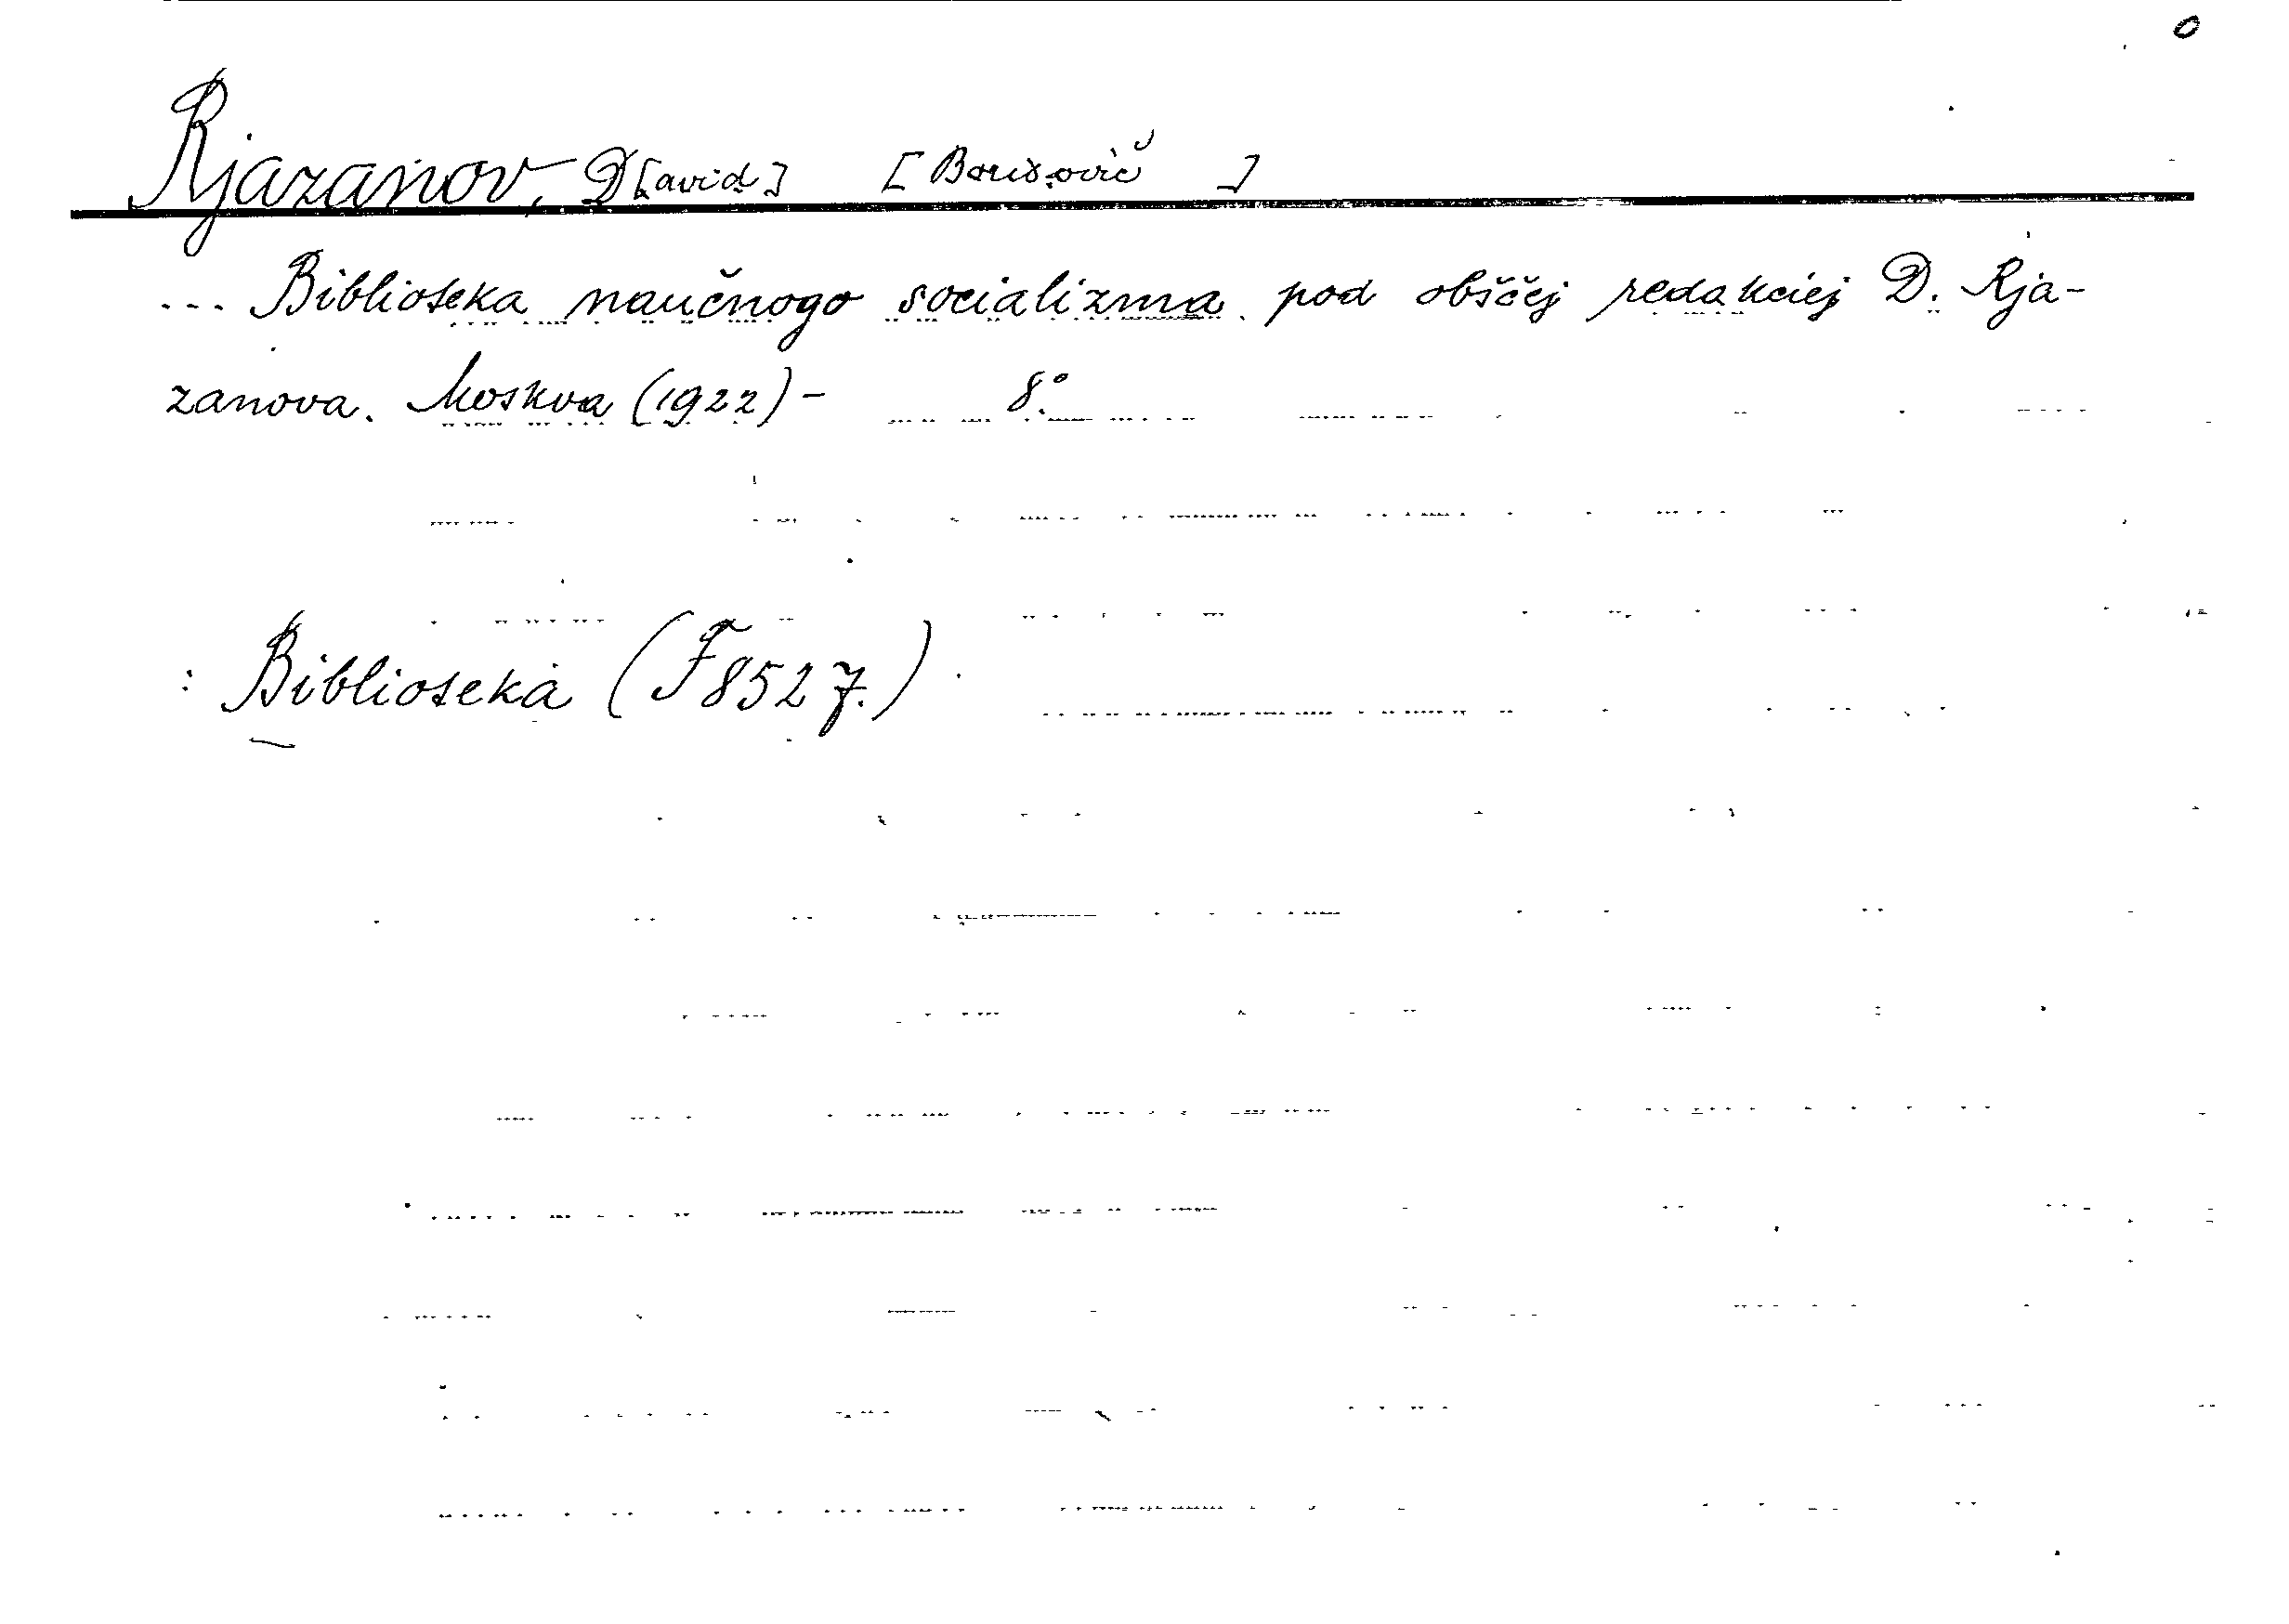 0
Rjazanov, D[avid] [Borisovič]
... Biblioteka naučnogo socializma pod obščej redakciej D. Rja-
zanova. Moskva (1922) - 8°.
: Biblioteka (F8527.)